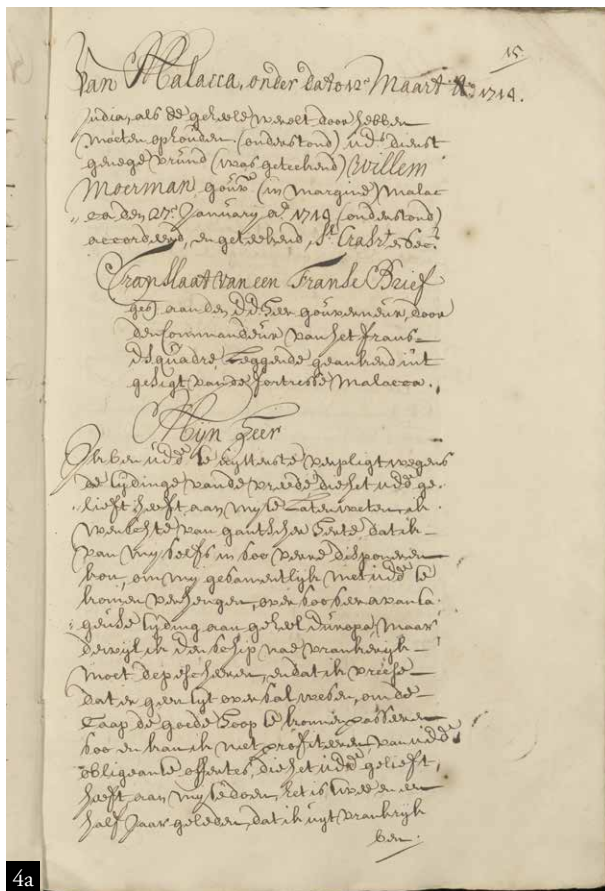 15
Van Malacca, onder dato 12e Maart Ao 1714.
India, als de geheele werelt door hebben
moeten ophouden. (onderstond) uEds dienst
genege vrund (was geteekend) Willem
Moerman, gouvr (in margine) Malac
„ca den 27e January ao 1714 (onderstond)
accordeerd, en geteekend,
Translaat van een Franse Brief
aan den Ed Heer gouverneur, door
den Commandeur van het frans
Esquadre, leggende geankerd int
gesigt van de fortresse Malacca.,
Mijn Heer
Ik ben uEd te uytterste verpligt wegens
de tydinge van de vreede die het uEd ge„
„lieft heeft, aan my te laten weten, ik
wenschte van gantscher herte dat ik
van my selfs in soo verre disponeren
kon, om my gesamentlijk met uEd te
konnen verheugen, over soo seer avanta„
„geuse tyding aan geheel Europa, maar
dewyl ik den schip nae vrankryk
moet depescheeren, en dat ik vreese
dat er geen tyt over sal wesen, om de
Caap de goede Hoop te konnen passeeren
soo en kan ik niet profiteren van uEds
obligeante offertes, die het uEd gelieft,
heeft, aan my te doen, het is twee en een
half Jaar geleden, dat ik uyt vrankryk
ben.
4a